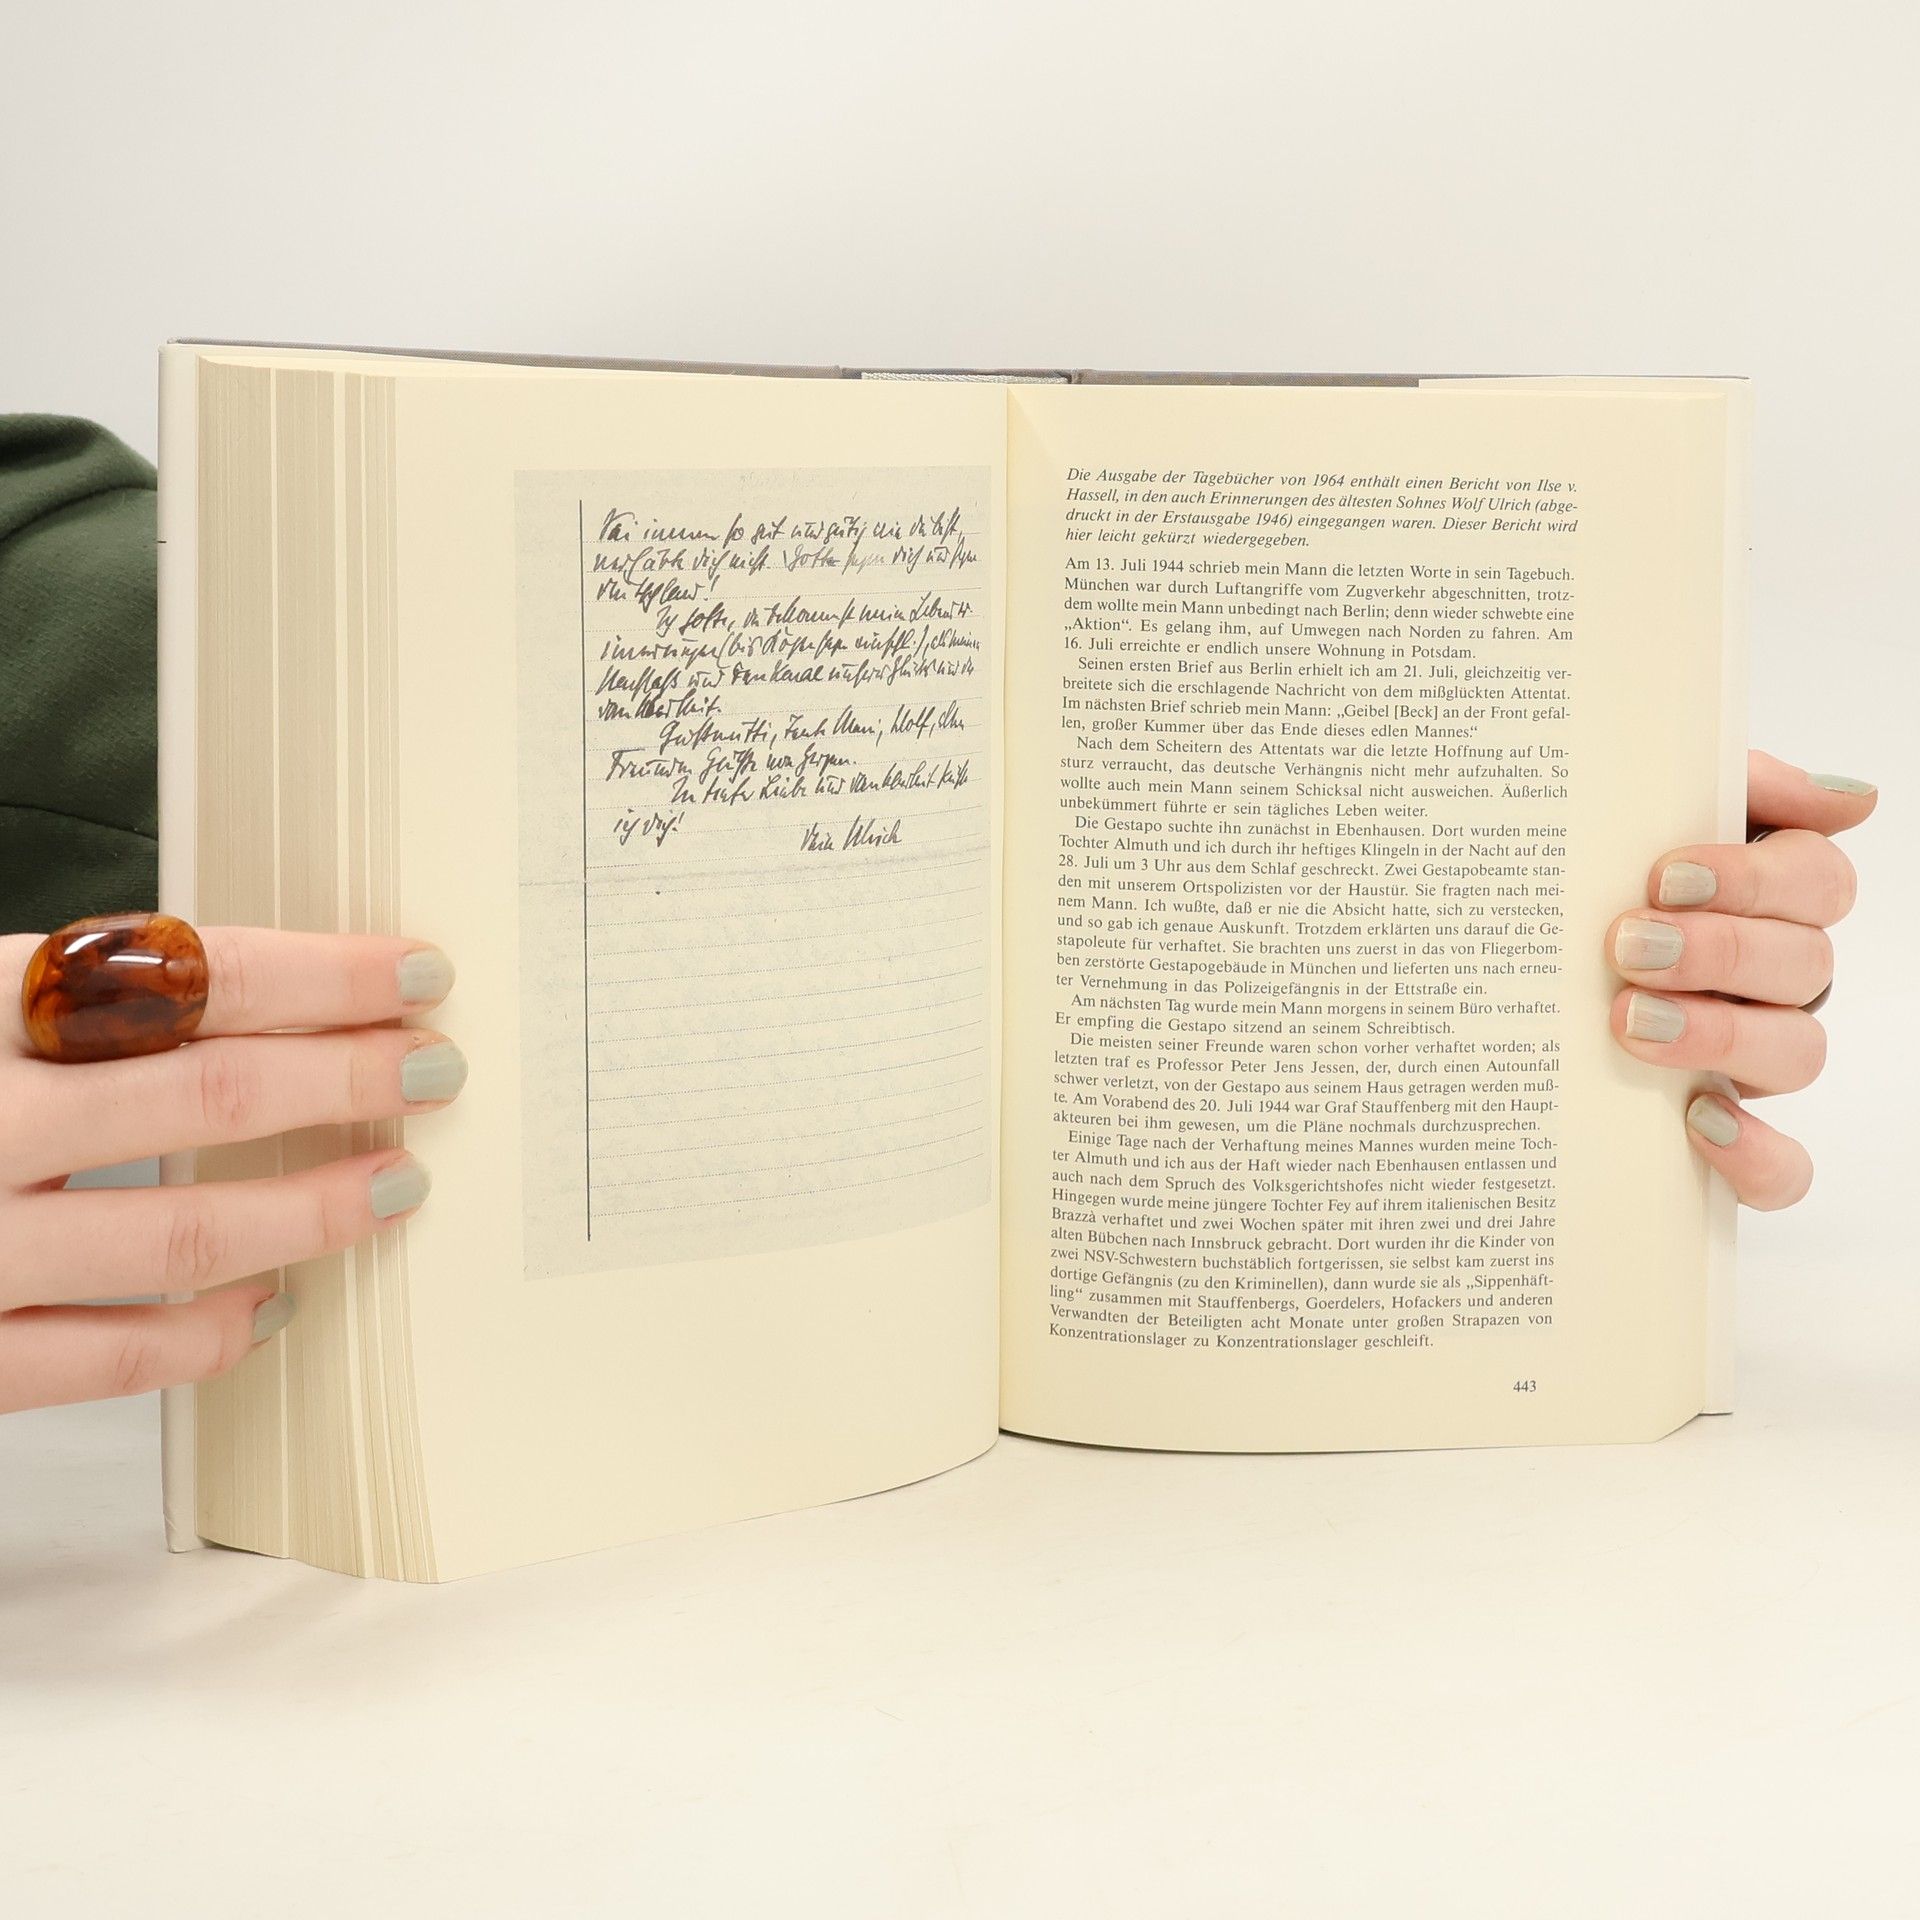 Sei immer so gut und gütig wie du bist,
verhärte dich nicht. Gott segne dich und segne
Deutschland!
Ich hoffe, du bekommst meine Lebenser-
innerungen (bis
und Denkmal unseres Glücks und der
Dankbarkeit.
Wolf, allen
Freunden Grüße von Herzen.
In tiefer Liebe und Dankbarkeit küsse
ich dich!
Dein Ulrich
Die Ausgabe der Tagebücher von 1964 enthält einen Bericht von Ilse v.
Hassell, in den auch Erinnerungen des ältesten Sohnes Wolf Ulrich (abge-
druckt in der Erstausgabe 1946) eingegangen waren. Dieser Bericht wird
hier leicht gekürzt wiedergegeben.
Am 13. Juli 1944 schrieb mein Mann die letzten Worte in sein Tagebuch.
München war durch Luftangriffe vom Zugverkehr abgeschnitten, trotz-
dem wollte mein Mann unbedingt nach Berlin; denn wieder schwebte eine
„Aktion“. Es gelang ihm, auf Umwegen nach Norden zu fahren. Am
16. Juli erreichte er endlich unsere Wohnung in Potsdam.
Seinen ersten Brief aus Berlin erhielt ich am 21. Juli, gleichzeitig ver-
breitete sich die erschlagende Nachricht von dem mißglückten Attentat.
Im nächsten Brief schrieb mein Mann: „Geibel [Beck] an der Front gefal-
len, großer Kummer über das Ende dieses edlen Mannes.“
Nach dem Scheitern des Attentats war die letzte Hoffnung auf Um-
sturz verraucht, das deutsche Verhängnis nicht mehr aufzuhalten. So
wollte auch mein Mann seinem Schicksal nicht ausweichen. Äußerlich
unbekümmert führte er sein tägliches Leben weiter.
Die Gestapo suchte ihn zunächst in Ebenhausen. Dort wurden meine
Tochter Almuth und ich durch ihr heftiges Klingeln in der Nacht auf den
28. Juli um 3 Uhr aus dem Schlaf geschreckt. Zwei Gestapobeamte stan-
den mit unserem Ortspolizisten vor der Haustür. Sie fragten nach mei-
nem Mann. Ich wußte, daß er nie die Absicht hatte, sich zu verstecken,
und so gab ich genaue Auskunft. Trotzdem erklärten uns darauf die Ge-
stapoleute für verhaftet. Sie brachten uns zuerst in das von Fliegerbom-
ben zerstörte Gestapogebäude in München und lieferten uns nach erneu-
ter Vernehmung in das Polizeigefängnis in der Ettstraße ein.
Am nächsten Tag wurde mein Mann morgens in seinem Büro verhaftet.
Er empfing die Gestapo sitzend an seinem Schreibtisch.
Die meisten seiner Freunde waren schon vorher verhaftet worden; als
letzten traf es Professor Peter Jens Jessen, der, durch einen Autounfall
schwer verletzt, von der Gestapo aus seinem Haus getragen werden muß-
te. Am Vorabend des 20. Juli 1944 war Graf Stauffenberg mit den Haupt-
akteuren bei ihm gewesen, um die Pläne nochmals durchzusprechen.
Einige Tage nach der Verhaftung meines Mannes wurden meine Toch-
ter Almuth und ich aus der Haft wieder nach Ebenhausen entlassen und
auch nach dem Spruch des Volksgerichtshofes nicht wieder festgesetzt.
Hingegen wurde meine jüngere Tochter Fey auf ihrem italienischen Besitz
Brazzà verhaftet und zwei Wochen später mit ihren zwei und drei Jahre
alten Bübchen nach Innsbruck gebracht. Dort wurden ihr die Kinder von
zwei NSV-Schwestern buchstäblich fortgerissen, sie selbst kam zuerst ins
dortige Gefängnis (zu den Kriminellen), dann wurde sie als „Sippenhäft-
ling“ zusammen mit Stauffenbergs, Goerdelers, Hofackers und anderen
Verwandten der Beteiligten acht Monate unter großen Strapazen von
Konzentrationslager zu Konzentrationslager geschleift.
443